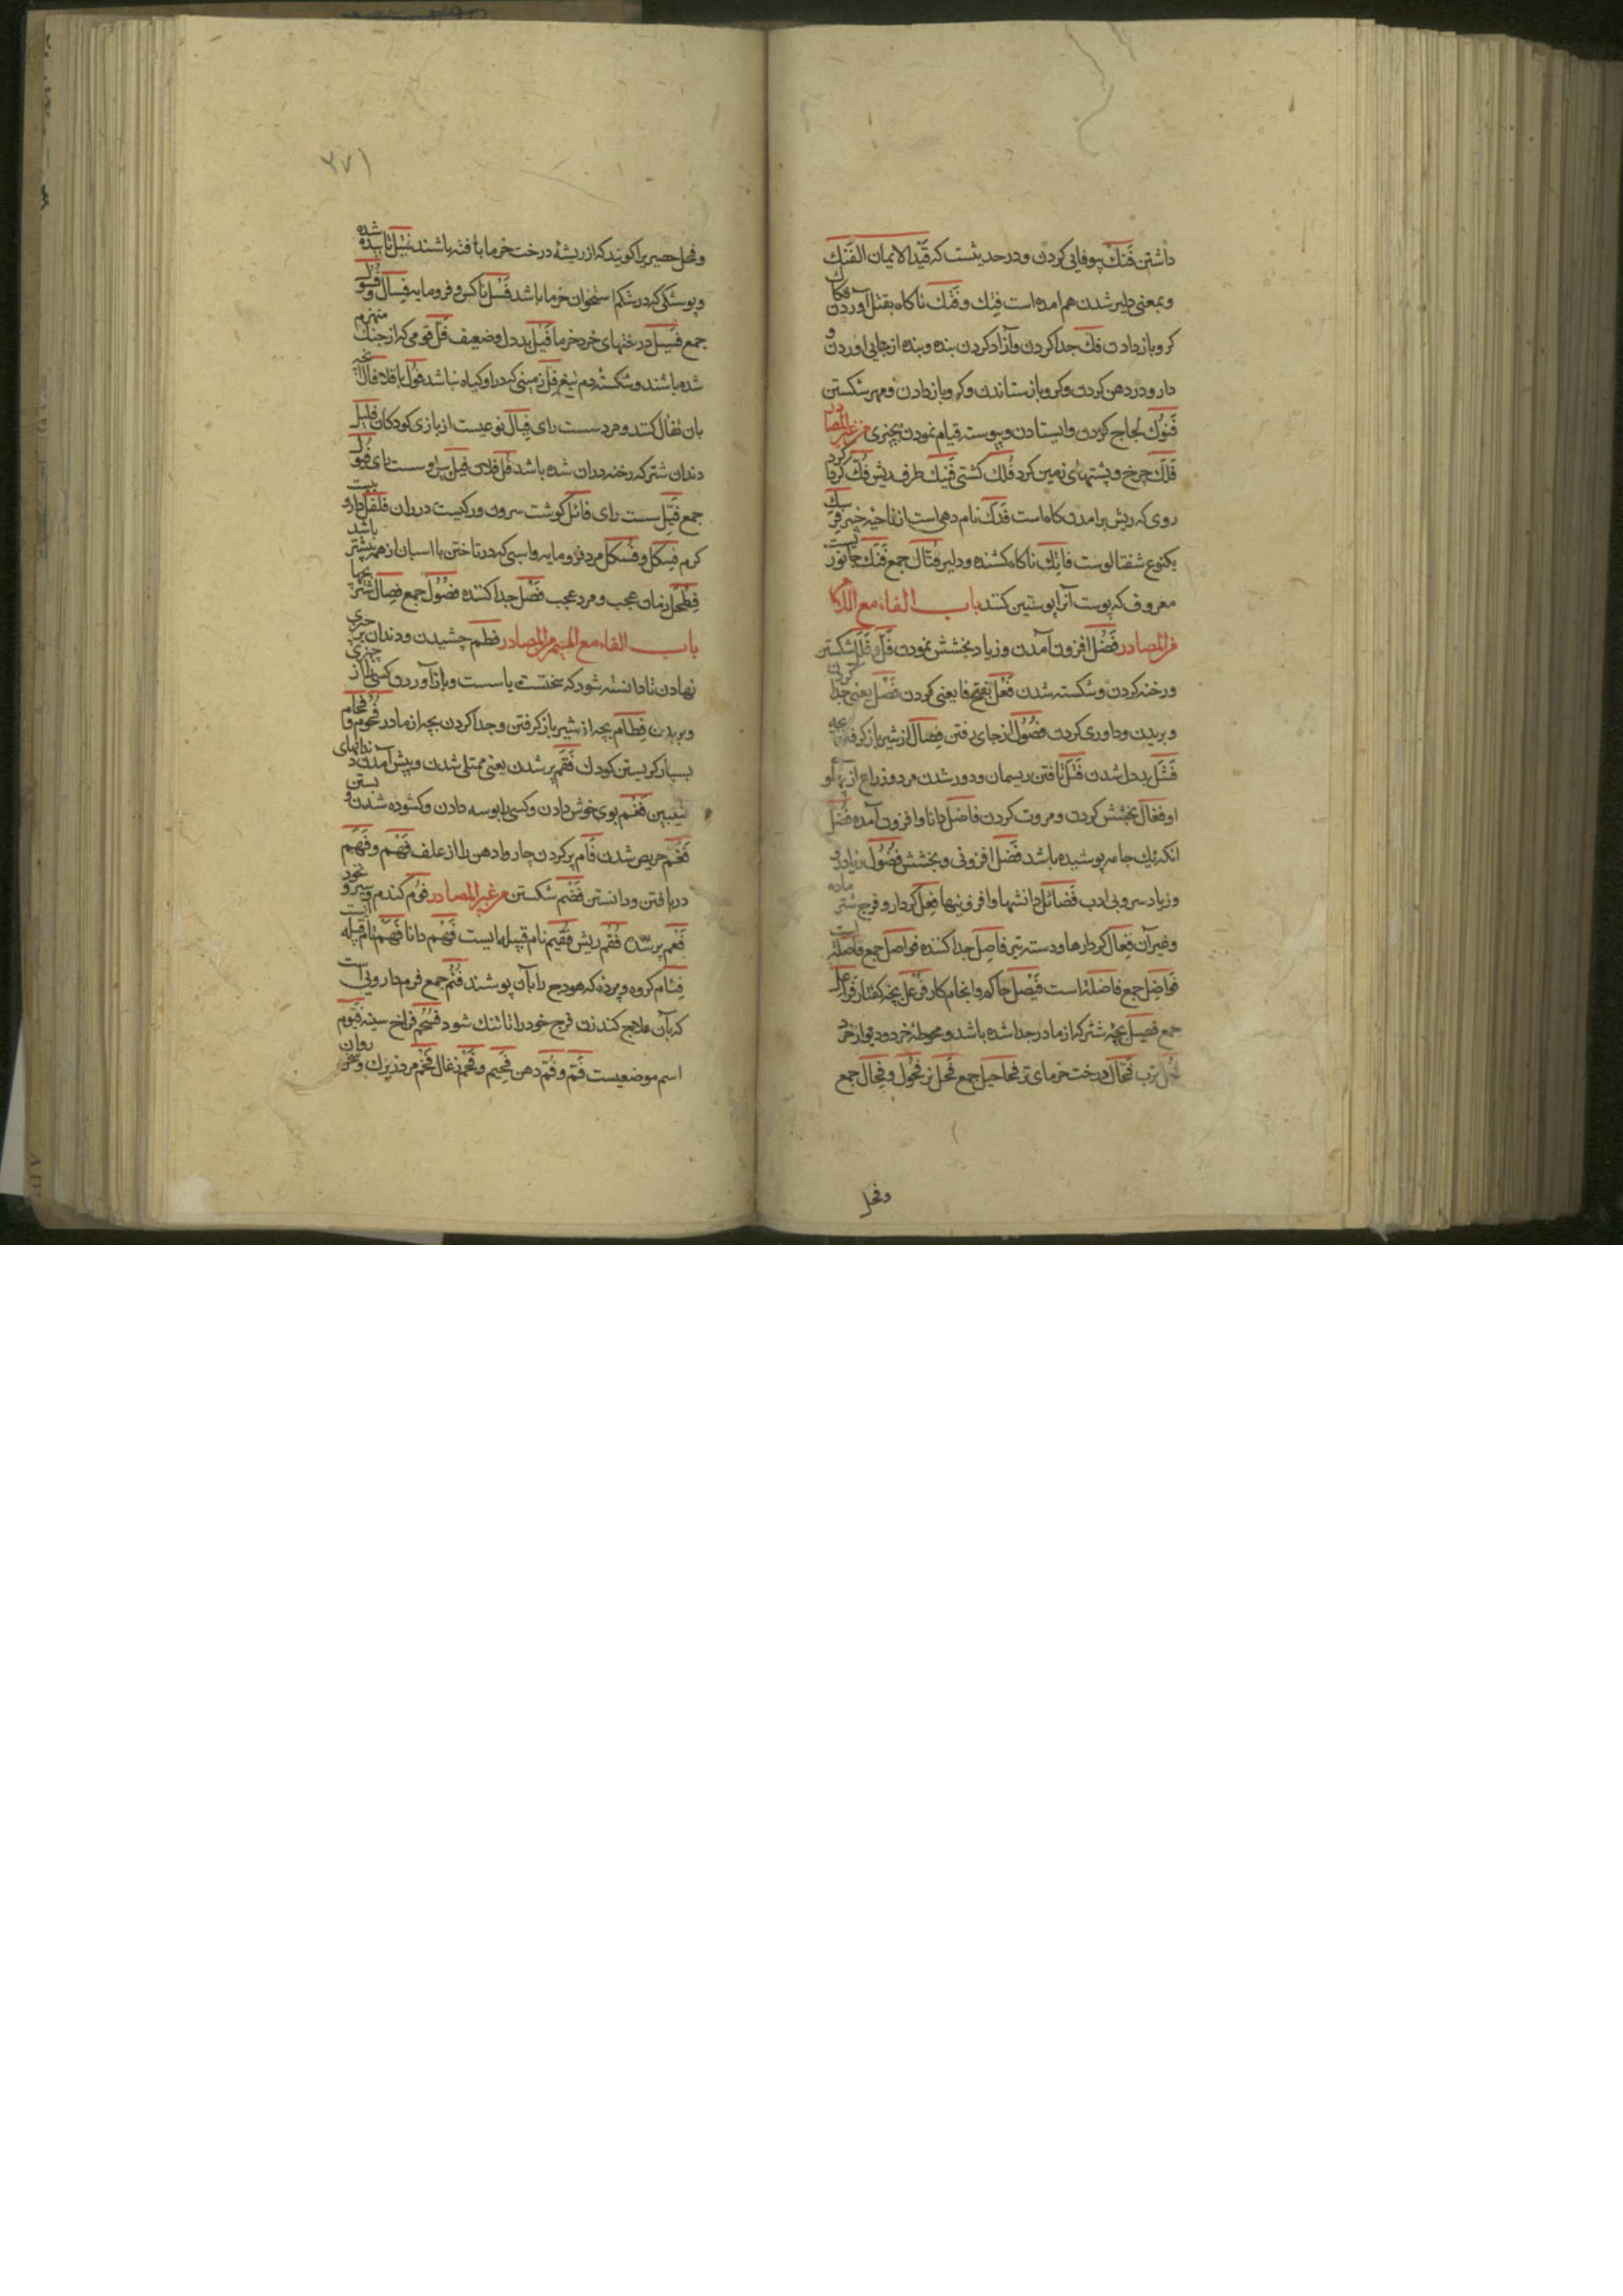 داشتن فَتك بیوفایی کردن و در حدیثست که قَیَّد الایمان الفَتك
و بمعنی دلیر شدن هم امده است فِتك و فَتْك ناکاه بقتل آوردن فکاك
کرو باز دادن فكّ جدا کردن و آزاد کردن بنده و بنده از جایی اوردن و
دارو در دهن کردن و کرو باز ستاندن و کرو باز دادن و مهر شکستن
فُنوُك لجاج کردن و ایستادن و پیوسته قیام نمودن بچیزی من غیر المصادر
فَلَك چرخ و پشتهای زمین کرد فُلك کشتی فَنیك طرف ریش فكّ کرد
روی که ریش برامدن کاه است فَدَك نام دهی است از نواحی خیبر فرسك
یکنوع شفتالوست فاتِك ناکاه کشنده و دلیر فتّاك جمع فَنَك جانوریست
معروف که پوست آنرا پوستین کنند باب الفاء مع اللام
من المصادر فَضْل افزون آمدن و زیاد بخشش نمودن فَلّ و فَلَل شکستن
و رخنه کردن و شکسته شدن فَعْل بفتح فا یعنی کردن فَصْل یعنی جدا کردن
و بریدن و داوری کردن فصُوُل از جای رفتن فِصال از شیر باز کرفتن بچه
فَشَل بددل شدن فَتْل تافتن ریسمان و دور شدن مرد و ذراع از پهلو
او فَعَال بخشش کردن و مروت کردن فاضل دانا و افزون آمده فُضُل
انکه یك جامه پوشیده باشد فَضْل افزونی و بخشش فضُوُل زیادتی
و زیاد سر و بی ادب فَضائل دانشها و افزونیها فِعْل کردار و فرج شتر ماده
و غیر آن فِعال کردارها و دسته تبر فاصِل جدا کننده فواصل جمع فاصله است
فَواضِل جمع فاضله است فَیْصَل حاکم و انجام کار فُرْعُل بچه کفتار فَراعِل
جمع فصیل بچه شتر که از مادر جدا شده باشد و محوطه خرد و دیوار خرد
فُجل ترب فُحّال درخت خرمای نر فحاحیل جمع فَحْل نر فُحُول و فِحال جمع
وفحل
٣٧١
و فحل حصیر را کویند که از ریشۀ درخت خرما بافته باشند فَتیل تابیده شده
و پوستکی که در شکم استخوان خرما باشد فَسْل ناکس و فرومایه فِسال و فُسُول
جمع فَسیل درختهای خرد خرما فَیِل بددل و ضعیف فَلّ قومی که از جنك منهزم
شده باشند و شکستۀ دم تیغ فِلّ زمینی که در او کیاه نباشد فوُل باقلا فال آنچه
بان تفال کنند و مرد سست رای فِیال نوعیست از بازی کودکان فلیل
دندان شتر که رخنه در ان شده باشد فُل فلان فیل پیل و سست رای فُیوُل
جمع فَیّل سست رای فائل کوشت سرون و رکیست در ران فلفل داروییست
کرم فِسکل و فُسکُل مرد فرومایه و اسبی که در تاختن با اسبان از همه پستر باشد
فِطَحْل زمان عجب و مرد عجب فَصْل جدا کننده فصُوُل جمع فصال شتر بچها
باب الفاء مع المیم من المصادر فطم چشیدن و دندان بر چیزی
نهادن تا دانسته شود که سختست یا سست و باز آوردن کسی را از چیزی
و بریدن فِطام بچه از شیر باز کرفتن و جدا کردن بچه از مادر فُحُوم و فُحام
بسیار کریستن کودك فَقَم پر شدن یعنی ممتلی شدن و پیش آمدن دندانهای
شیبین فَغْم بوی خوش دادن و کسی را بوسه دادن و کشوده شدن و بستن
فَغَم حریص شدن فَام پر کردن چاروا دهن را از علف فَهْم و فَهَم
دریافتن و دانستن فَصْم شکستن من غیر المصادر فوُم کندم و سیر و نخود
فَعْم پر شده فُقْم ریش فُقَیم نام قبیله ایست فَهِم دانا فَهْم نام قبیله ایست
فِئام کروه و پرده که هودج را بآن پوشند فُئُم جمع فرم دارویی است
که بآن علاج کند زن فرج خود را تا تنك شود فُسْحُم فراخ سینه فیّوم
اسم موضعیست فَم و فُم دهن فَحِیم و فَحْم زغال فَخْم مرد بزرك و سخن روان